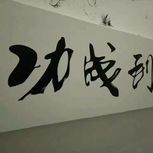 功成到